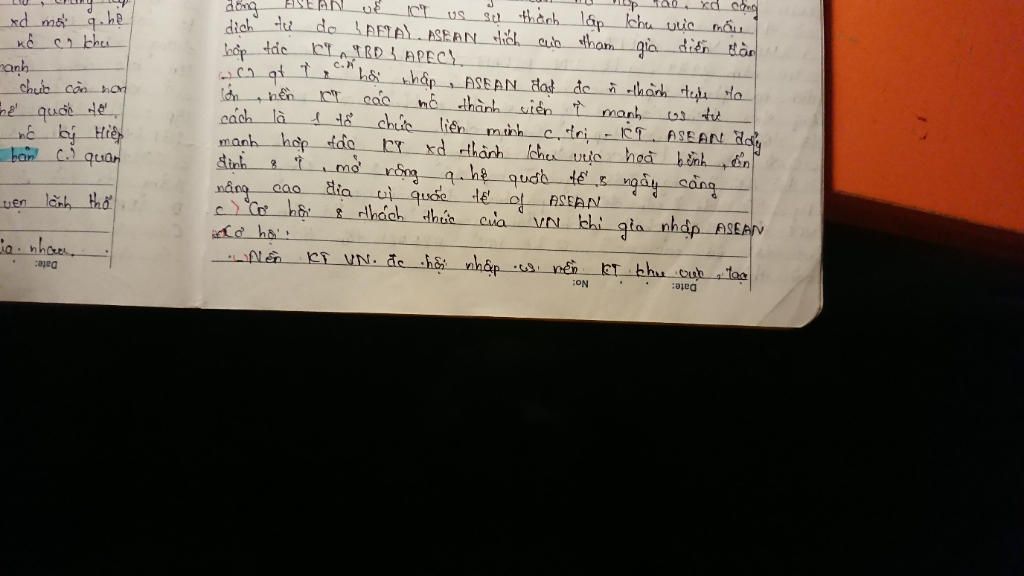 xd mối q.hệ
chức cần
quốc tế.
nc ký Hiệp
bản quan
vẹn lãnh thổ
nhau.
Date:
đồng ASEAN về KT vs sự thành lập khu vực mậu
dịch tự do (AFTA). ASEAN tích cực tham gia diễn đàn
hợp tác KT TBD (APEC).
gt hội nhập, ASEAN đạt đc thành tựu to
lớn, nền KT các nc thành viên ↑ mạnh vs tư
cách là 1 tổ chức liên minh c.trị - KT. ASEAN đẩy
mạnh hợp tác KT xd thành khu vực hoà bình, ổn
định & ↑, mở rộng q.hệ quốc tế & ngày càng
nâng cao địa vị quốc tế of ASEAN
c) Cơ hội & thách thức của VN khi gia nhập ASEAN
Cơ hội:
Nền KT VN đc hội nhập vs nền KT khu vực, tạo
No: Date: